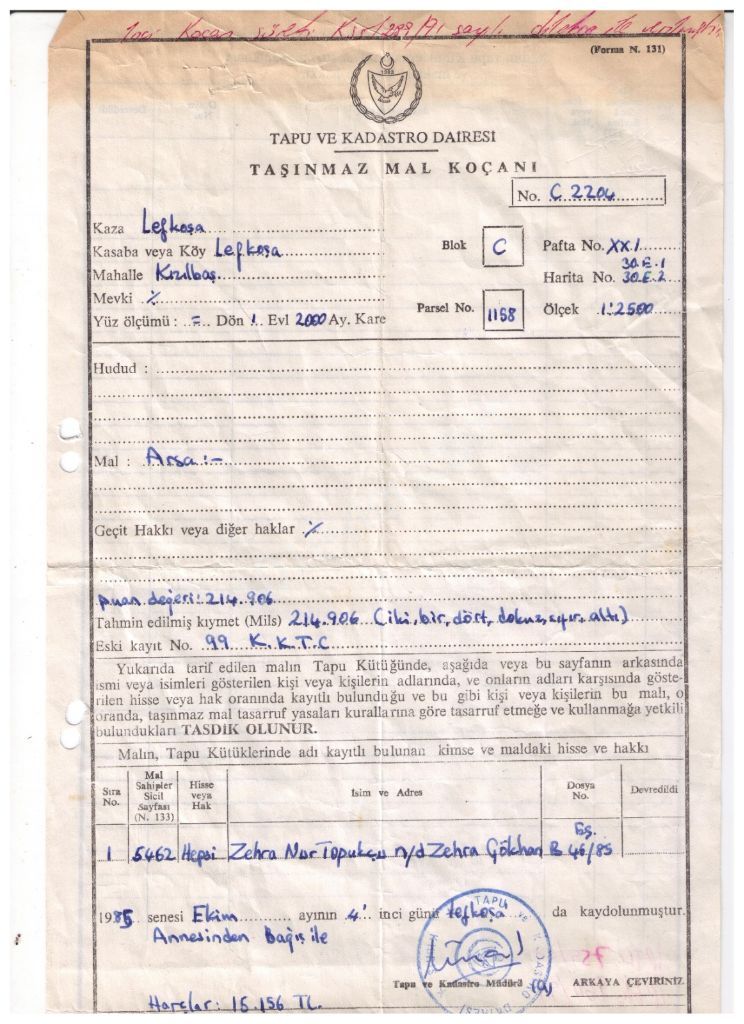 inci Koçan sureti sayılı dilekçe ile verilmiştir
(Forma N. 131)
TAPU VE KADASTRO DAİRESİ
TAŞINMAZ MAL KOÇANI
No. C 2204
Kaza Lefkoşa
Kasaba veya Köy Lefkoşa
Mahalle Kızılbaş
Mevki ٪
Yüz ölçümü : = Dön 1 Evl 2000 Ay. Kare
Blok C
Parsel No. 1158
Pafta No. XXI
30.E.1
Harita No. 30.E.2
Ölçek 1:2500
Hudud :
Mal : Arsa :-
Geçit Hakkı veya diğer haklar ٪
puan değeri: 214.906
Tahmin edilmiş kıymet (Mils) 214.906 (iki, bir, dört, dokuz, sıfır, altı)
Eski kayıt No. 99 K.K.T.C
Yukarıda tarif edilen malın Tapu Kütüğünde, aşağıda veya bu sayfanın arkasında
ismi veya isimleri gösterilen kişi veya kişilerin adlarında, ve onların adları karşısında göste-
rilen hisse veya hak oranında kayıtlı bulunduğu ve bu gibi kişi veya kişilerin bu malı, o
oranda, taşınmaz mal tasarruf yasaları kurallarına göre tasarruf etmeğe ve kullanmağa yetkili
bulundukları TASDİK OLUNUR.
Malın, Tapu Kütüklerinde adı kayıtlı bulunan kimse ve maldaki hisse ve hakkı
Sıra No. Mal Sahipler Sicil Sayfası (N. 133) Hisse veya Hak İsim ve Adres Dosya No. Devredildi
1 5462 Hepsi Zehra Nur Topukçu n/d Zehra Gökhan B 46/85
1985 senesi Ekim ayının 4' inci günü Lefkoşa da kaydolunmuştur.
Annesinden Bağış ile
TAPU ve KADASTRO DAİRESİ
Tapu ve Kadastro Müdürü (a)
ARKAYA ÇEVİRİNİZ
Harçlar: 15.156 TL.